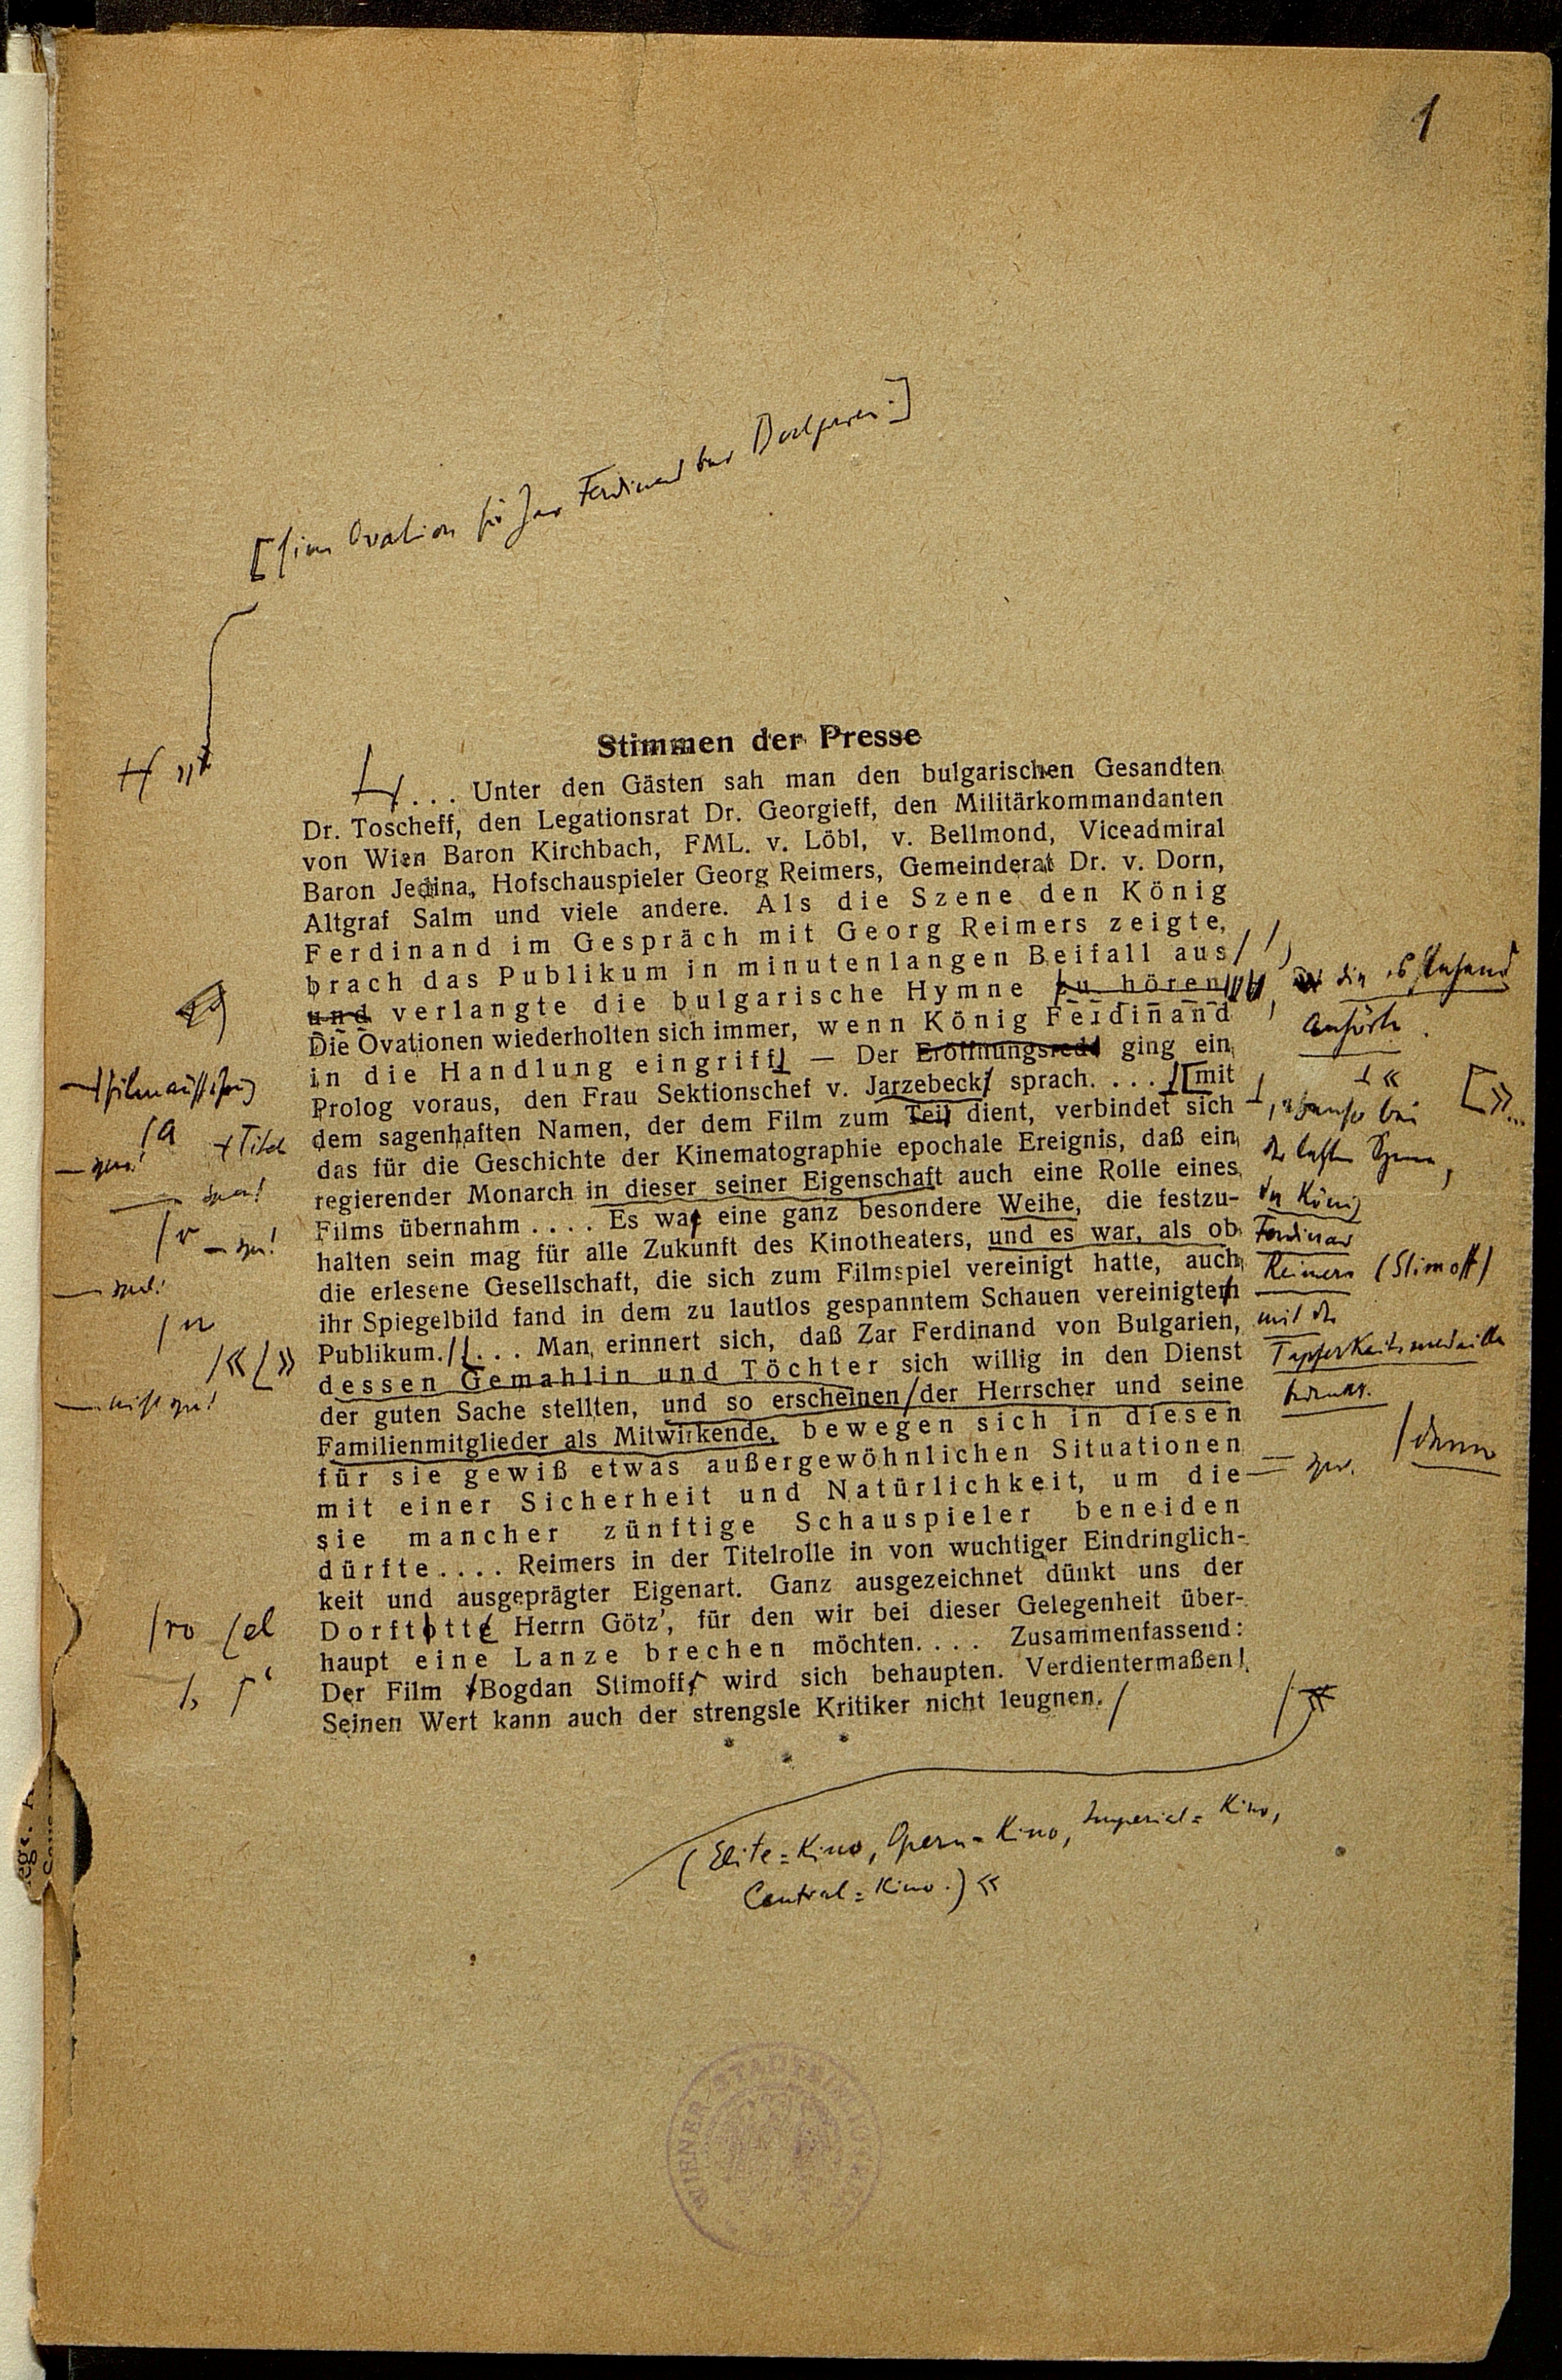 1
[Eine Ovation für Zar Ferdinand von Bulgarien.]
Stimmen der Presse
. . . Unter den Gästen sah man den bulgarischen Gesandten
Dr. Toscheff, den Legationsrat Dr. Georgieff, den Militärkommandanten
von Wien Baron Kirchbach, FML. v. Löbl, v. Bellmond, Viceadmiral
Baron Jedina, Hofschauspieler Georg Reimers, Gemeinderat Dr. v. Dorn,
Altgraf Salm und viele andere. Als die Szene den König
Ferdinand im Gespräch mit Georg Reimers zeigte,
brach das Publikum in minutenlangen Beifall aus
und verlangte die bulgarische Hymne zu hören
, die es stehend
anhörte.
Die Ovationen wiederholten sich immer, wenn König Ferdinand
in die Handlung eingriff — Der Eröffnungsrede ging ein
Filmaufführung
Prolog voraus, den Frau Sektionschef v. Jarzebeck sprach. . . . [mit
a
dem sagenhaften Namen, der dem Film zum Teil dient, verbindet sich
Titel
das für die Geschichte der Kinematographie epochale Ereignis, daß ein
regierender Monarch in dieser seiner Eigenschaft auch eine Rolle eines
Films übernahm . . . . Es war eine ganz besondere Weihe, die festzu-
halten sein mag für alle Zukunft des Kinotheaters, und es war, als ob
die erlesene Gesellschaft, die sich zum Filmspiel vereinigt hatte, auch
ihr Spiegelbild fand in dem zu lautlos gespanntem Schauen vereinigten
Publikum. . . . Man erinnert sich, daß Zar Ferdinand von Bulgarien,
« »
dessen Gemahlin und Töchter sich willig in den Dienst
der guten Sache stellten, und so erscheinen der Herrscher und seine
denn
Familienmitglieder als Mitwirkende, bewegen sich in diesen
für sie gewiß etwas außergewöhnlichen Situationen
mit einer Sicherheit und Natürlichkeit, um die
sie mancher zünftige Schauspieler beneiden
dürfte . . . . Reimers in der Titelrolle in von wuchtiger Eindringlich-
keit und ausgeprägter Eigenart. Ganz ausgezeichnet dünkt uns der
Dorftotte Herrn Götz', für den wir bei dieser Gelegenheit über-
ro el
haupt eine Lanze brechen möchten. . . . Zusammenfassend:
Der Film Bogdan Stimoff wird sich behaupten. Verdientermaßen!
Seinen Wert kann auch der strengsle Kritiker nicht leugnen.
, ebenso bei
der letzten Szene,
der König
Ferdinand
Reimers (Stimoff)
mit der
Tapferkeitsmedaille
(Elite=Kino, Opern=Kino, Imperial=Kino,
Central=Kino.) «
WIENER STADTBIBLIOTHEK